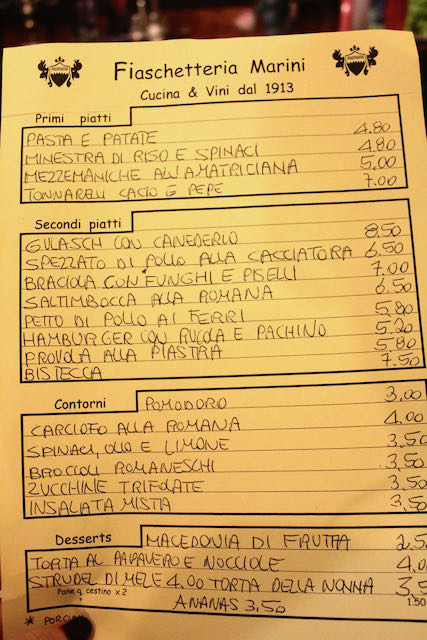 Fiaschetteria Marini
Cucina & Vini dal 1913
Primi piatti
PASTA E PATATE 4.80
MINESTRA DI RISO E SPINACI 4.80
MEZZEMANICHE ALL'AMATRICIANA 5,00
TONNARELLI CACIO E PEPE 7.00
Secondi piatti
GULASCH CON CANEDERLO 8,50
SPEZZATO DI POLLO ALLA CACCIATORA 6,50
BRACIOLA CON *FUNGHI E PISELLI 7.00
SALTIMBOCCA ALLA ROMANA 6,50
PETTO DI POLLO AI FERRI 5,80
HAMBURGER CON RUCOLA E PACHINO 5,20
PROVOLA ALLA PIASTRA 5,80
BISTECCA 7.50
Contorni POMODORO 3,00
CARCIOFO ALLA ROMANA 4.00
SPINACI, OLIO E LIMONE 3,50
BROCCOLI ROMANESCHI 3,50
ZUCCHINE TRIFOLATE 3,50
INSALATA MISTA 3,50
Desserts MACEDONIA DI FRUTTA 2,5
TORTA AL PAPAVERO E NOCCIOLE 4,0
STRUDEL DI MELE 4.00 TORTA DELLA NONNA 3,5
Pane q. cestino x 2 1.50
ANANAS 3,50
* PORCIN